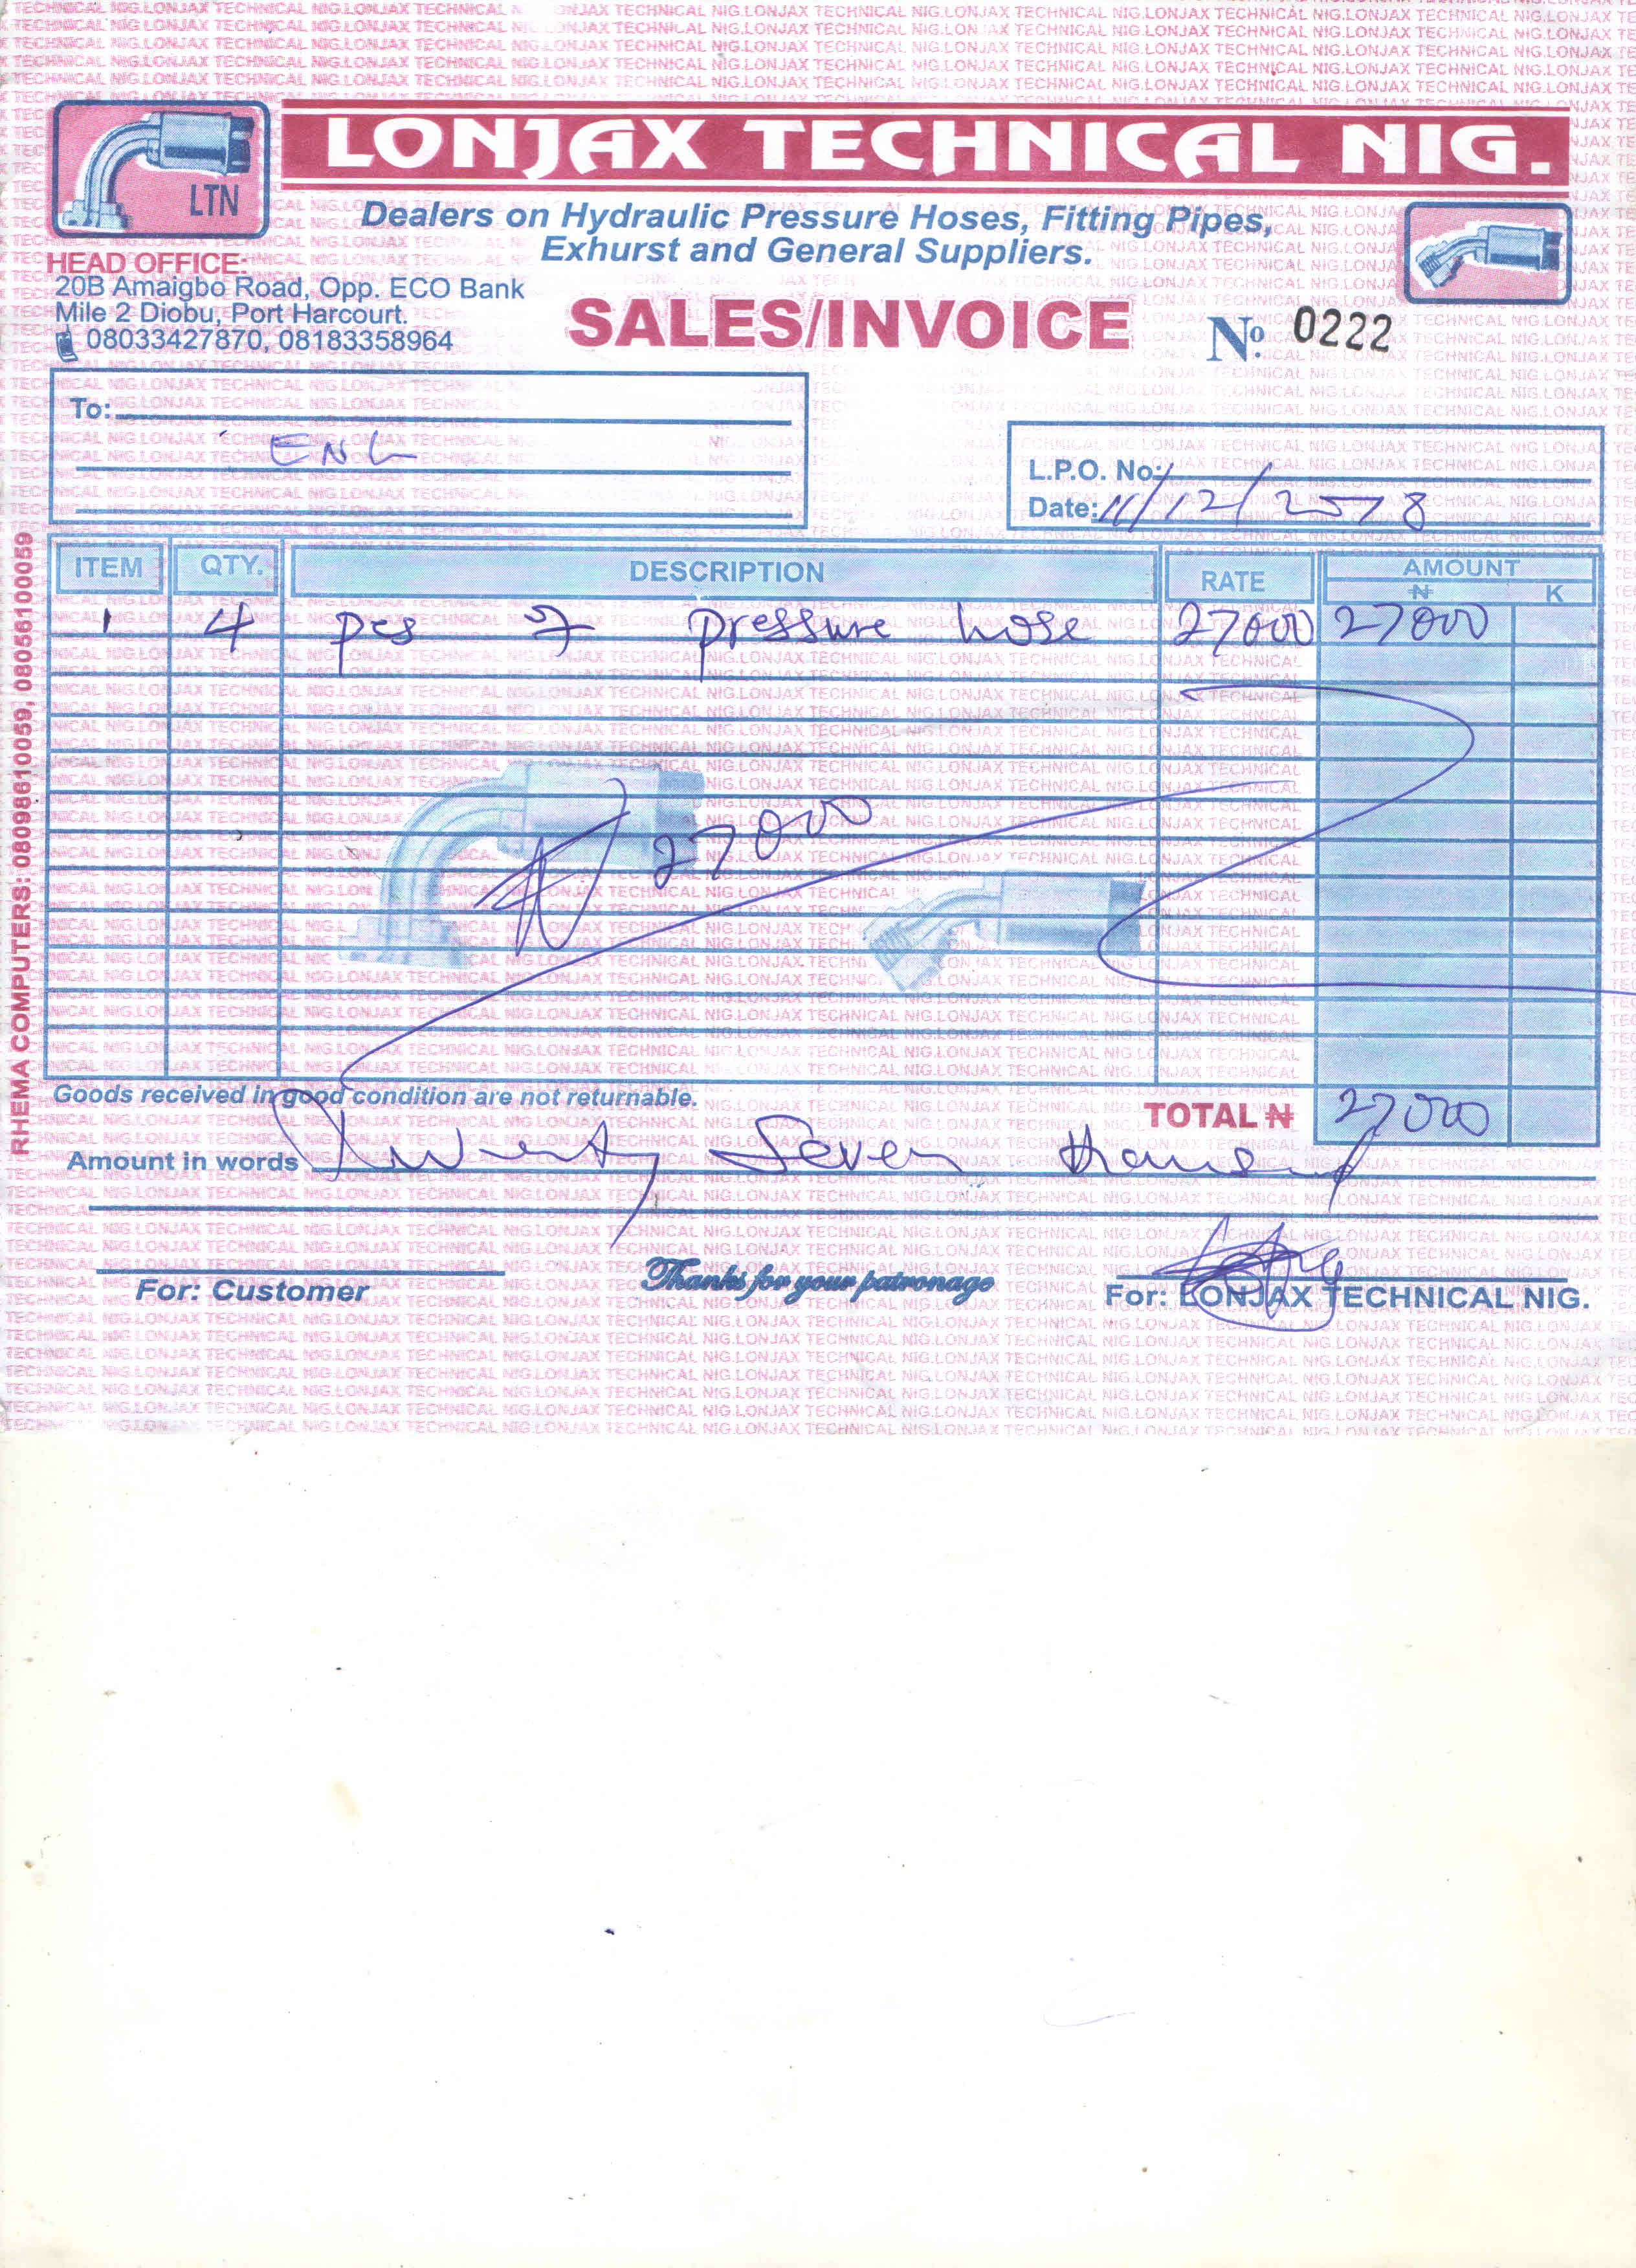 LONJAX TECHNICAL NIG.
LTN
Dealers on Hydraulic Pressure Hoses, Fitting Pipes,
Exhurst and General Suppliers.
HEAD OFFICE:
20B Amaigbo Road, Opp. ECO Bank
Mile 2 Diobu, Port Harcourt.
08033427870, 08183358964
SALES/INVOICE
No. 0222
To:
L.P.O. No:
Date: 11/12/2018
ITEM QTY. DESCRIPTION RATE AMOUNT
₦ K
1 4 pcs of pressure hose 27000 27000
₦ 27000
Goods received in good condition are not returnable.
TOTAL ₦ 27000
Amount in words Twenty Seven thousand
For: Customer
Thanks for your patronage
For: LONJAX TECHNICAL NIG.
RHEMA COMPUTERS: 08098610059, 08056100059